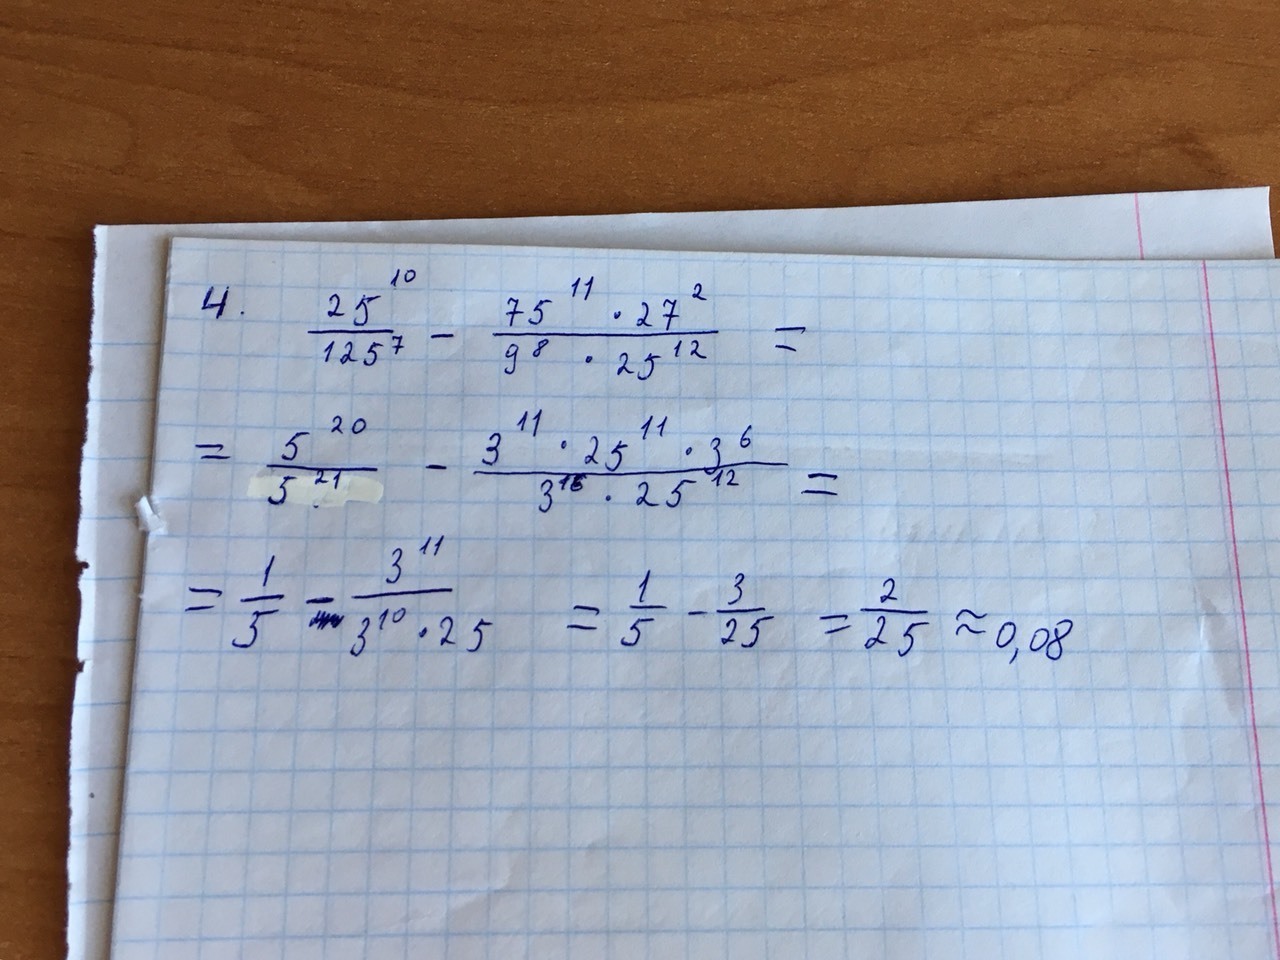 4. 25^10/125^7 - 75^11 · 27^2/9^8 · 25^12 =
= 5^20/5^21 - 3^11 · 25^11 · 3^6/3^16 · 25^12 =
= 1/5 - 3^11/3^10 · 25 = 1/5 - 3/25 = 2/25 ≈ 0,08